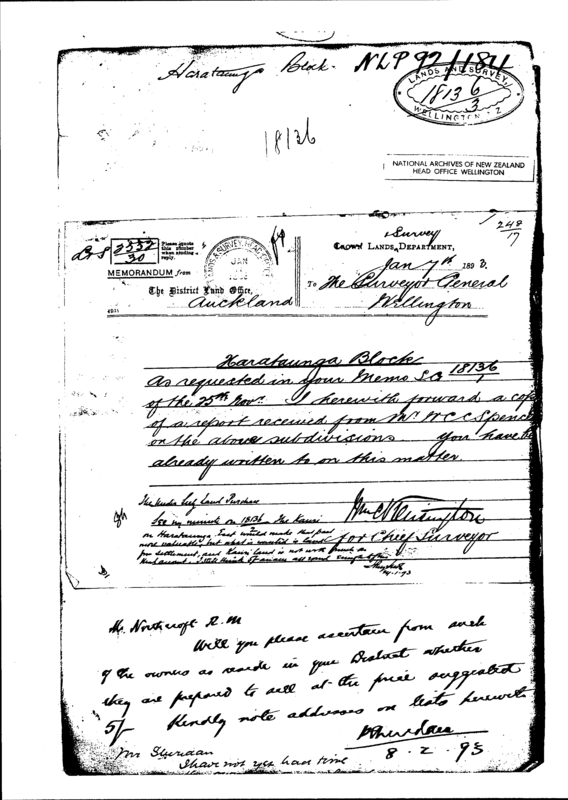 Harataunga Block. NLP 92/184
LANDS AND SURVEY,
18136
3
WELLINGTON N.Z
18136
NATIONAL ARCHIVES OF NEW ZEALAND
HEAD OFFICE WELLINGTON
248
17
Survey
2332
30
Please quote
this number
when sending
reply.
CROWN LANDS DEPARTMENT,
JAN
Jan 7th 1893.
MEMORANDUM from
The District Land Office,
To The Surveyor General
Auckland
Wellington
Harataunga Block
As requested in your Memo S.G 18136/1
of the 25th Novr. I herewith forward a copy
of a report received from Mr W C C Spence
on the above subdivisions you have
already written to on this matter.
The Under Secy Land Purchase
See my minute on 18136 - The Kauri
on Harataunga East would make that part
more valuable, but what is wanted is land
for settlement, and Kauri land is not worth much
for Chief Surveyor
Mr. Northcroft R.M
Will you please ascertain from such
of the owners as reside in your District whether
they are prepared to sell at the price suggested
5/- Kindly note addresses on lists herewith
P Sheridan
8.2.93
Mr Sheridan
I have not yet had time